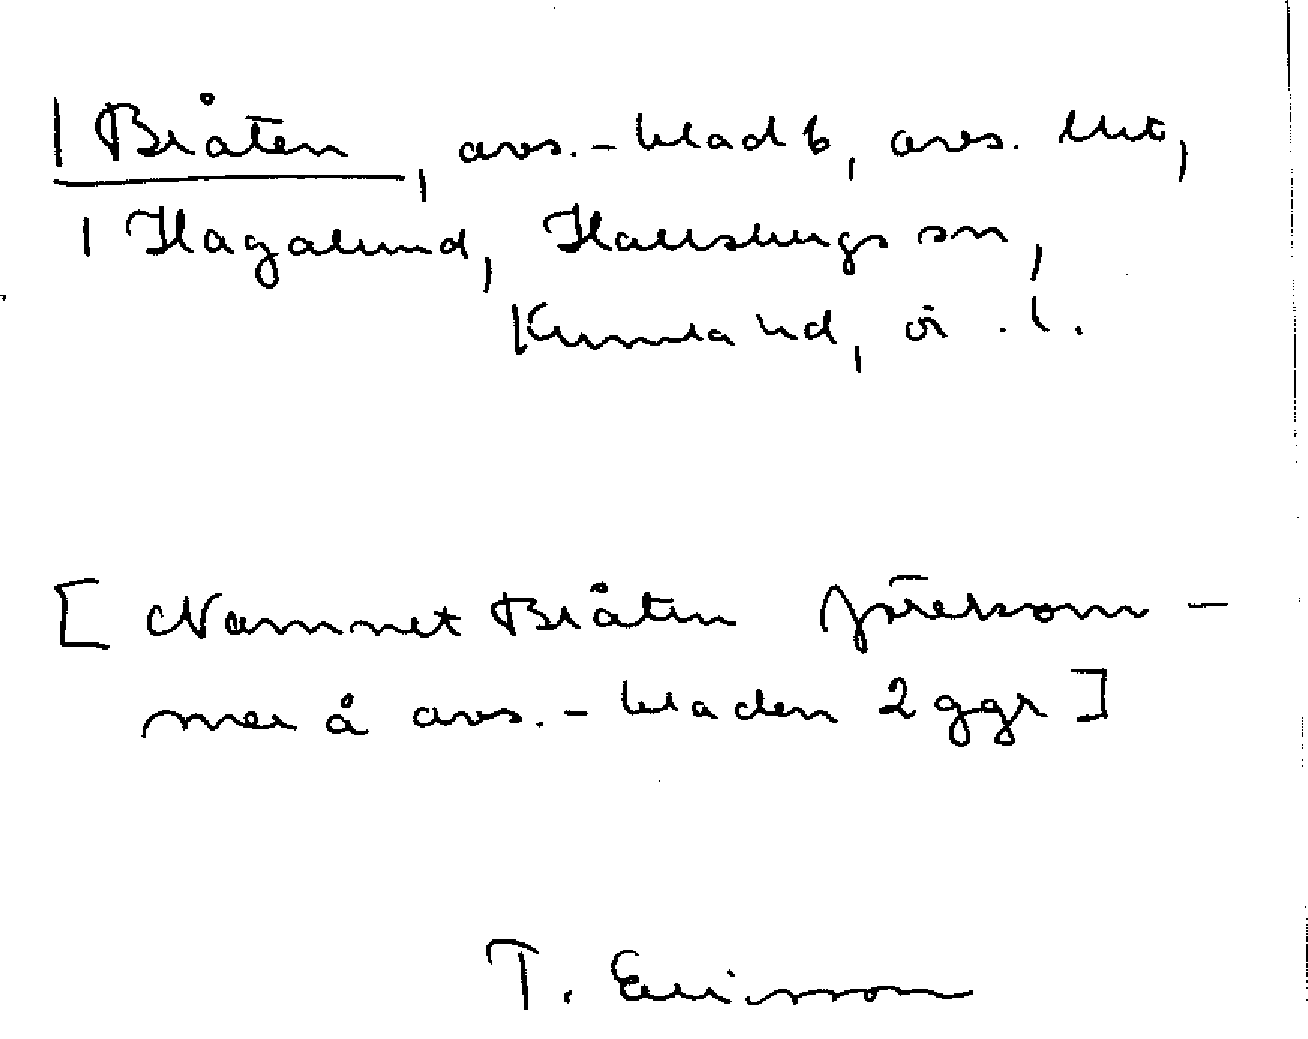 | Bråten, avs.-blad b, avs. litt,
| Hagalund, Hallsbergs sn,
Kumla hd, ö. l.
[ Namnet Bråten förekom-
mer å avs.-bladen 2 ggr ]
T. Ericsson